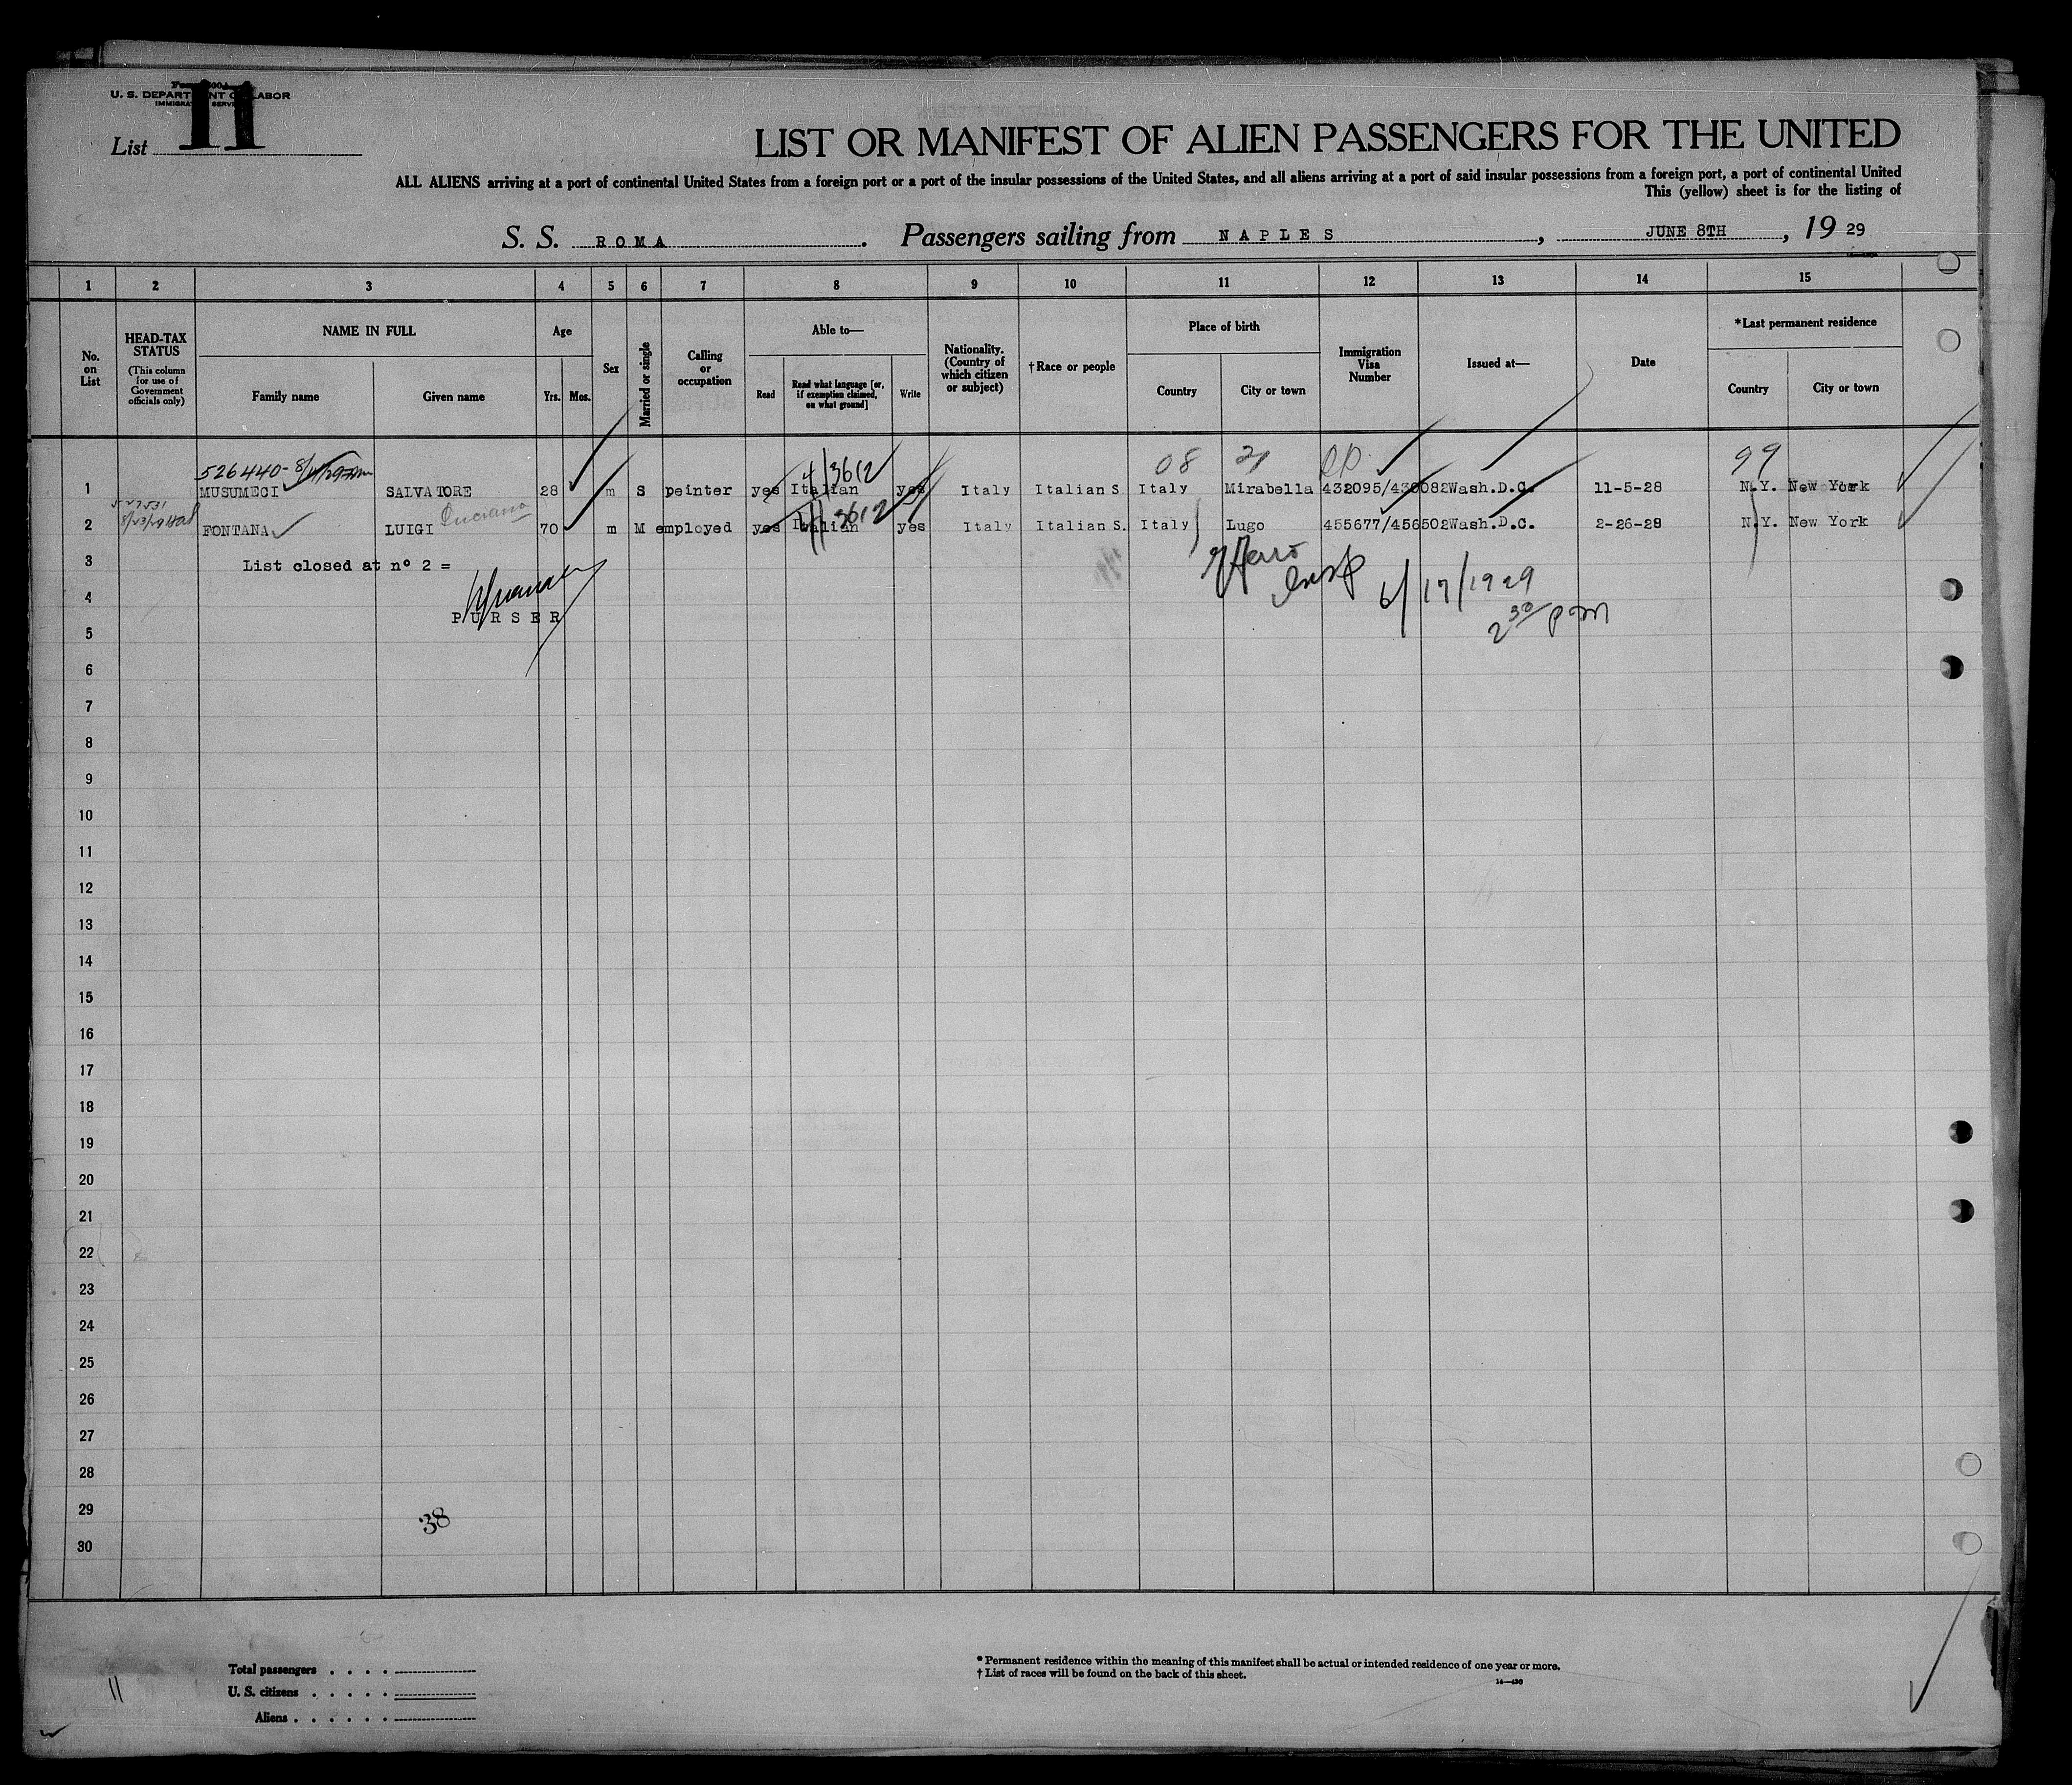 U. S. DEPARTMENT OF LABOR
IMMIGRATION SERVICE
List 11
LIST OR MANIFEST OF ALIEN PASSENGERS FOR THE UNITED
ALL ALIENS arriving at a port of continental United States from a foreign port or a port of the insular possessions of the United States, and all aliens arriving at a port of said insular possessions from a foreign port, a port of continental United
This (yellow) sheet is for the listing of
S. S. ROMA. Passengers sailing from NAPLES, JUNE 8TH, 19 29
1 2 3 4 5 6 7 8 9 10 11 12 13 14 15
No. on List
HEAD-TAX STATUS (This column for use of Government officials only)
NAME IN FULL
Family name Given name
Age
Yrs. Mos.
Sex
Married or single
Calling or occupation
Able to—
Read Read what language [or, if exemption claimed, on what ground] Write
Nationality. (Country of which citizen or subject)
†Race or people
Place of birth
Country City or town
Immigration Visa Number
Issued at—
Date
*Last permanent residence
Country City or town
526440- 4/3612 08 21 99
1 MUSUMECI SALVATORE 28 m S peinter yes Italian yes Italy Italian S. Italy Mirabella 432095/430082 Wash.D.C. 11-5-28 N.Y. New York
527531 3612
2 FONTANA LUIGI 70 m M employed yes Italian yes Italy Italian S. Italy Lugo 455677/456502 Wash.D.C. 2-26-29 N.Y. New York
3 List closed at n° 2 =
4 6/17/1929
PURSER
5 2 30 pm
6
7
8
9
10
11
12
13
14
15
16
17
18
19
20
21
22
23
24
25
26
27
28
29
38
30
Total passengers . . . .
U. S. citizens . . . . .
Aliens . . . . . .
11
* Permanent residence within the meaning of this manifest shall be actual or intended residence of one year or more.
† List of races will be found on the back of this sheet.